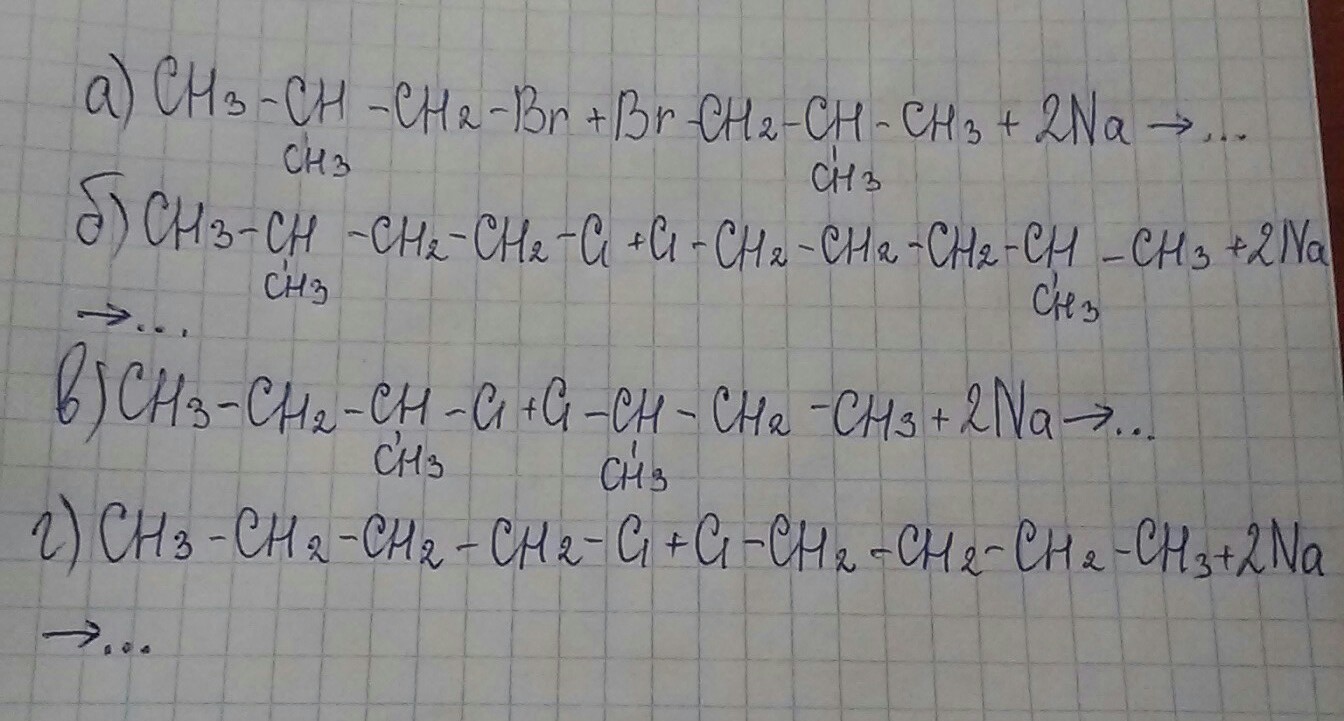 а) CH3-CH-CH2-Br+Br-CH2-CH-CH3+2Na→...
CH3 CH3
б) CH3-CH-CH2-CH2-Cl+Cl-CH2-CH2-CH2-CH-CH3+2Na
CH3 CH3
→...
в) CH3-CH2-CH-Cl+Cl-CH-CH2-CH3+2Na→...
CH3 CH3
г) CH3-CH2-CH2-CH2-Cl+Cl-CH2-CH2-CH2-CH3+2Na
→...